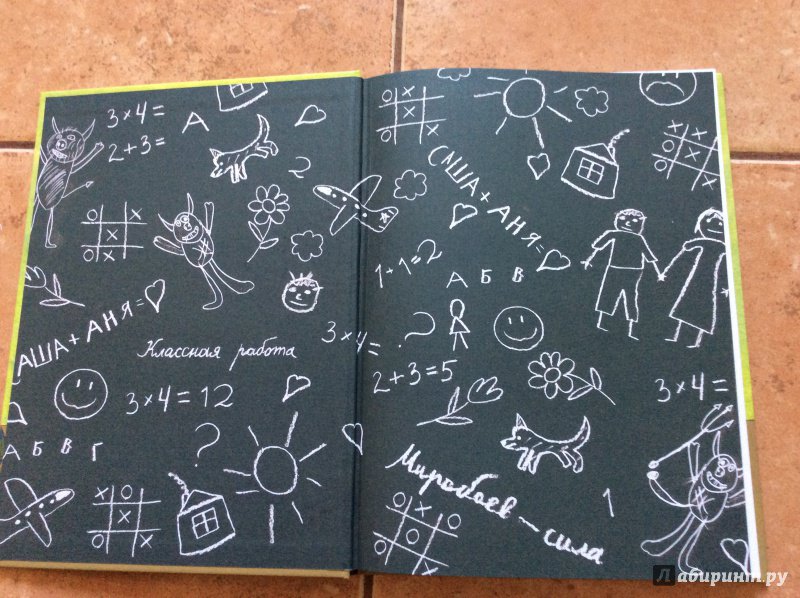 3×4=
2+3=
А
2
АША+АНЯ=
Классная работа
3×4=12
А Б В Г
?
3×4=
САША+АНЯ=
1+1=2
А Б В
?
2+3=5
3×4=
Миробоев — сила
1
Лабиринт.ру